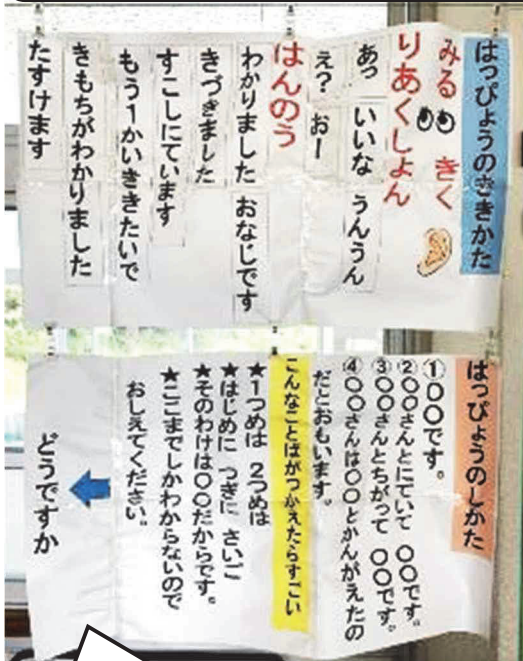 はっぴょうのききかた
みる きく
りあくしょん
あっ いいな うんうん
え? おー
はんのう
わかりました おなじです
きづきました
すこしにています
もう1かいききたいで
きもちがわかりました
たすけます
はっぴょうのしかた
①〇〇です。
②〇〇さんとにていて 〇〇です。
③〇〇さんとちがって 〇〇です。
④〇〇さんは〇〇とかんがえたの
だとおもいます。
こんなことばがつかえたらすごい
★1つめは 2つめは
★はじめに つぎに さいご
★そのわけは〇〇だからです。
★ここまでしかわからないので
おしえてください。
どうですか